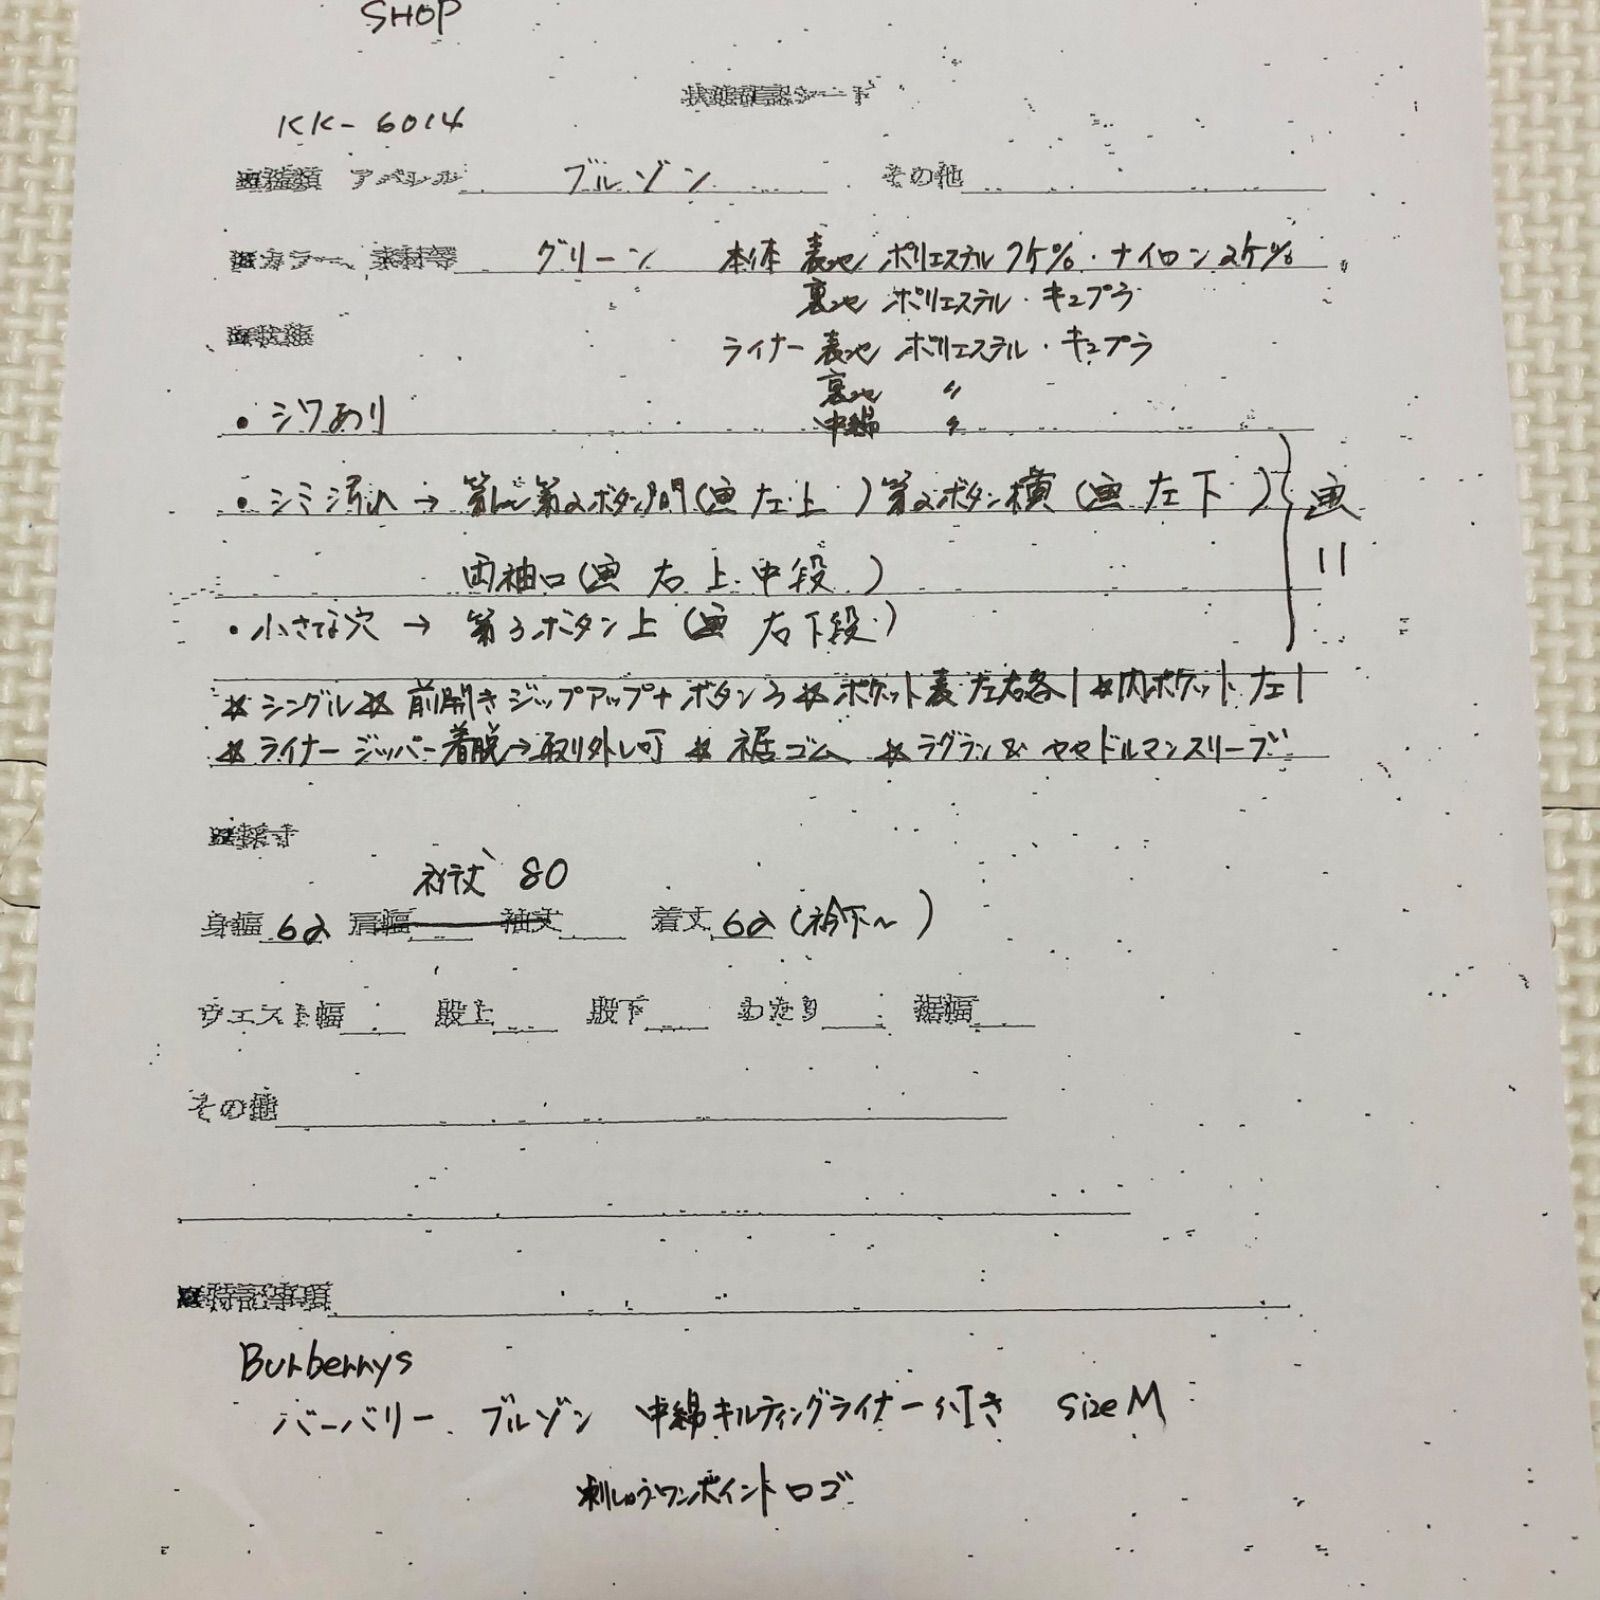 SHOP
状態確認シート
KK-6014
■種類 アパレル ブルゾン その他
■カラー、素材等 グリーン 本体 表地 ポリエステル75%・ナイロン25%
裏地 ポリエステル・キュプラ
■状態
ライナー 表地 ポリエステル・キュプラ
裏地 〃
中綿 〃
・シワあり
・シミ汚れ → 第1と第2ボタン間(画 左上)第2ボタン横(画 左下)
両袖口(画 右上 中段)
画11
・小さな穴 → 第3ボタン上(画 右下段)
*シングル*前開きジップアップ+ボタン3*ポケット表左右各1*内ポケット左1
*ライナー ジッパー着脱→取り外し可 *裾ゴム *ラグラン& ややドルマンスリーブ
■採寸
裄丈 80
身幅 62 肩幅 袖丈 着丈 62(衿下~)
ウエスト幅 股上 股下 わたり 裾幅
その他
■特記事項
Burberrys
バーバリー ブルゾン 中綿キルティングライナー付き size M
刺しゅうワンポイントロゴ